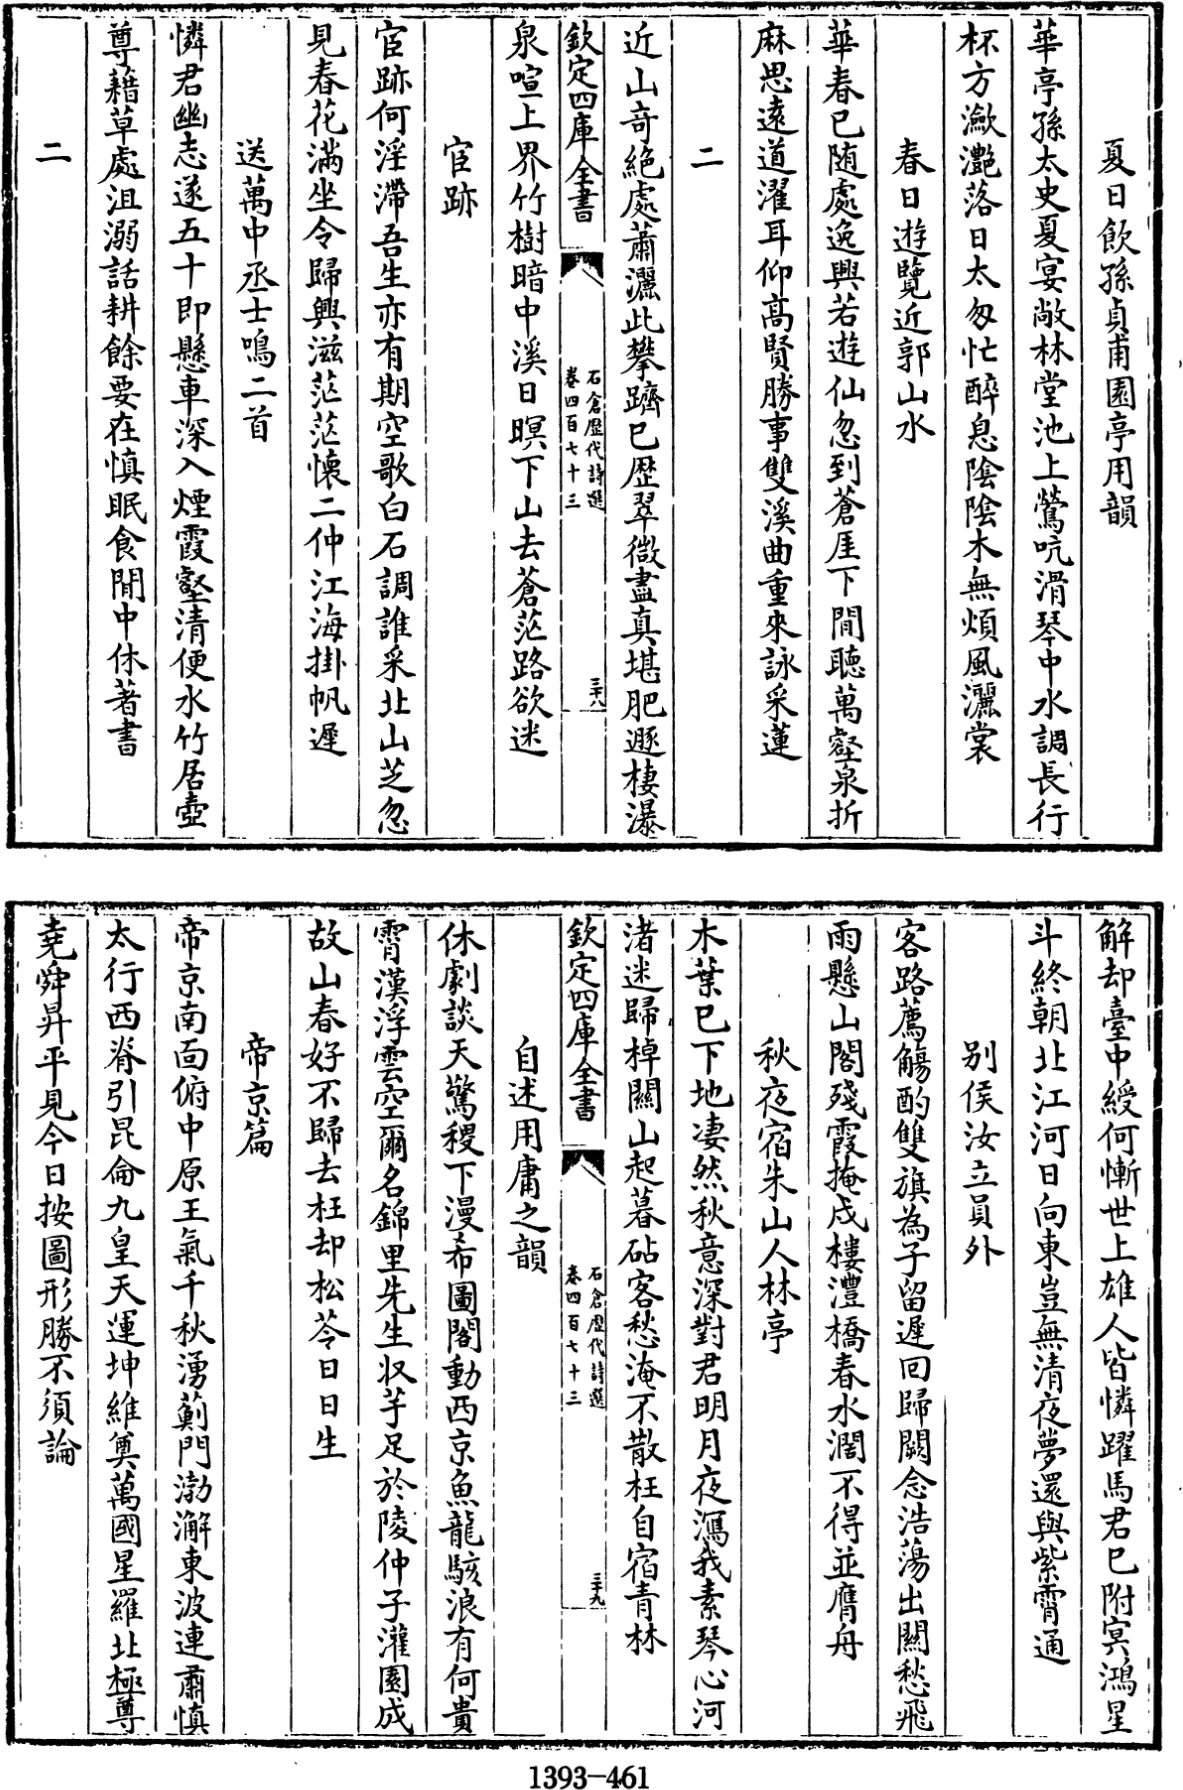 夏日飲孫貞甫園亭用韻
華亭孫太史夏宴敞林堂池上鶯吭滑琴中水調長行
杯方瀲灔落日太匆忙醉息陰陰木無煩風灑裳
春日遊覽近郭山水
華春已随處逸興若遊仙忽到蒼厓下間聽萬壑泉折
麻思逺道濯耳仰高賢勝事雙溪曲重來詠采蓮
二
近山奇絶處蕭灑此攀躋已歴翠微盡真堪肥遯棲瀑
欽定四庫全書
石倉歴代詩選
卷四百七十三
三十八
泉喧上界竹樹暗中溪日暝下山去蒼茫路欲迷
宦跡
宦跡何淫滯吾生亦有期空歌白石調誰采北山芝忽
見春花滿坐令歸興滋茫茫懐二仲江海掛帆遲
送萬中丞士鳴二首
憐君幽志遂五十即懸車深入煙霞壑清便水竹居壺
尊藉草處沮溺話耕餘要在慎眠食閒中休著書
二
解却臺中綬何慚世上雄人皆憐躍馬君已附冥鴻星
斗終朝北江河日向東豈無清夜夢還與紫霄通
别侯汝立員外
客路薦觴酌雙旗為子留遲回歸闕念浩蕩出關愁飛
雨懸山閣殘霞掩戍樓澧橋春水濶不得並膺舟
秋夜宿朱山人林亭
木葉已下地凄然秋意深對君明月夜瀉我素琴心河
渚迷歸棹關山起暮砧客愁淹不散枉自宿青林
欽定四庫全書
石倉歴代詩選
卷四百七十三
三十九
自述用庸之韻
休劇談天驚稷下漫希圖閣動西京魚龍駭浪有何貴
霄漢浮雲空爾名錦里先生収芋足於陵仲子灌園成
故山春好不歸去枉却松苓日日生
帝京篇
帝京南面俯中原王氣千秋湧薊門渤澥東波連肅慎
太行西脊引昆侖九皇天運坤維奠萬國星羅北極尊
堯舜昇平見今日按圖形勝不須論
1393-461